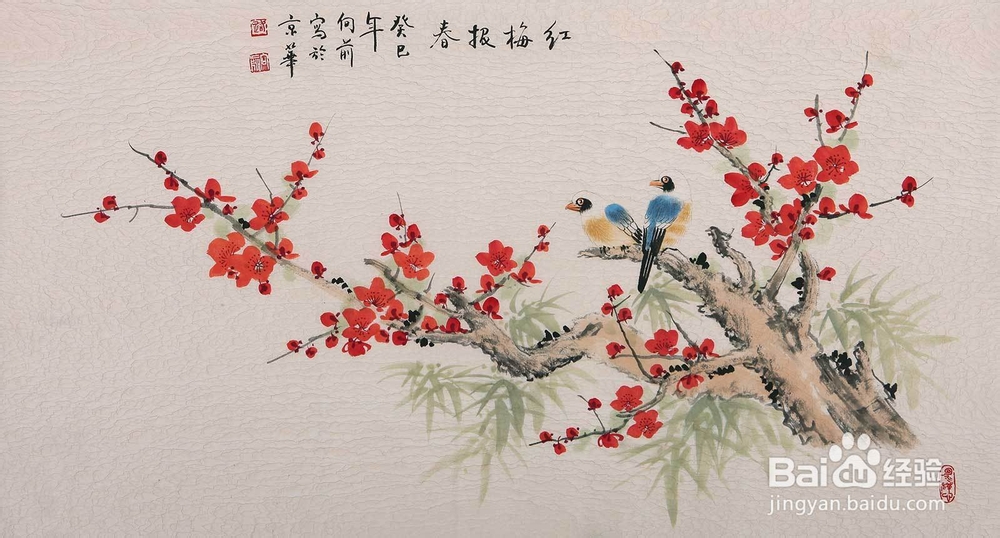 红梅报春
癸巳
年
向前
寫於
京華
Baidu经验
jingyan.baidu.com